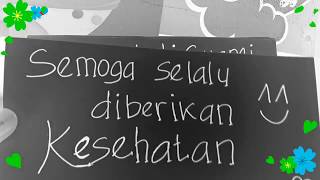 Semoga selalu
diberikan
Kesehatan